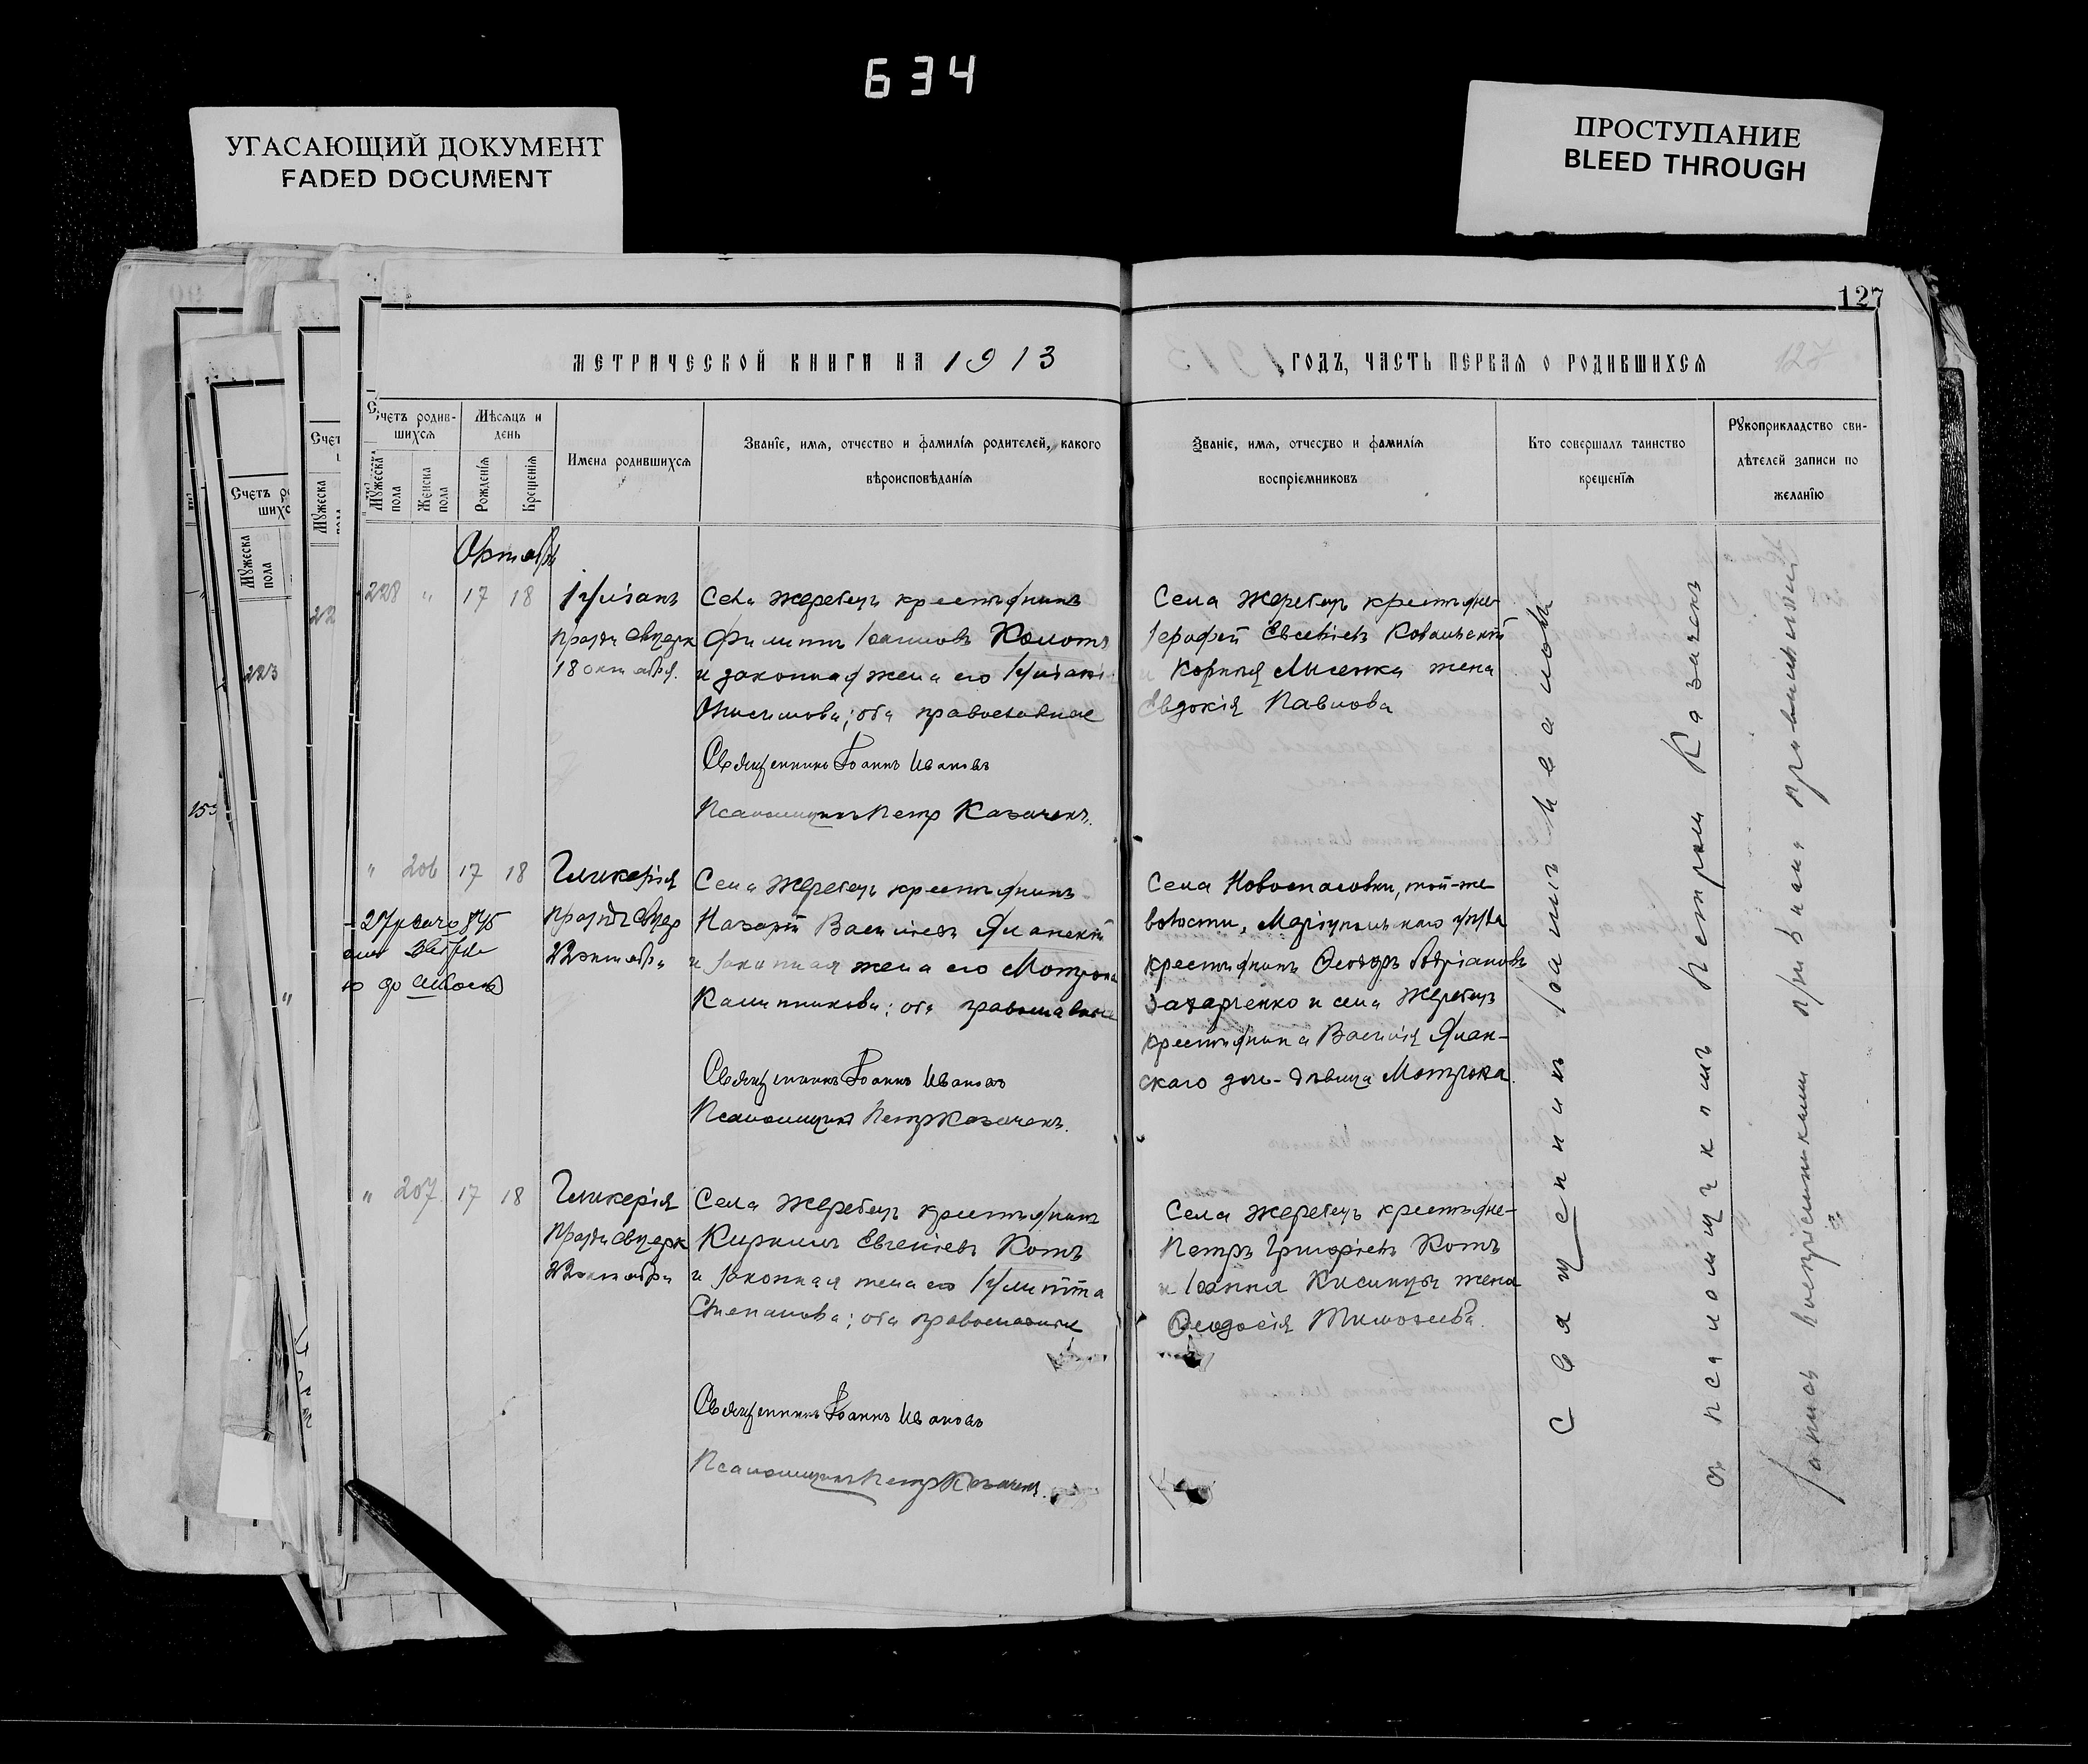 634
УГАСАЮЩИЙ ДОКУМЕНТ
FADED DOCUMENT
ПРОСТУПАНИЕ
BLEED THROUGH
127
МЕТРИЧЕСКОЙ КНИГИ НА 1913
ГОДЪ, ЧАСТЬ ПЕРВАЯ О РОДИВШИХСЯ
Счетъ родив-
шихся
Мужеска пола
Женска пола
Мѣсяцъ и
день
Рожденія
Крещенія
Имена родившихся
Званіе, имя, отчество и фамилія родителей, какого
вѣроисповѣданія
Званіе, имя, отчество и фамилія
воспріемниковъ
Кто совершалъ таинство
крещенія
Рукоприкладство сви-
дѣтелей записи по
желанію
Октябрь
228 " 17 18
Іуліанъ
18 октября.
Села Жеребецъ крестьянинъ
Филиппъ Іоанновъ Коломъ
и законная жена его
Онисимова; оба православные
Священникъ Іоаннъ Ивановъ
Псаломщикъ Петръ Казачекъ.
Села Жеребецъ крестьяне
Іерофей Евсевіевъ Ковалевскій
и Корнилія Лысенка жена
Евдокія Павлова
" 206 17 18
Гликерія
22 октября
Села Жеребецъ крестьянинъ
Назарій Васильевъ Яланскій
и законная жена его Мотрона
Калинникова; оба православные
Священникъ Іоаннъ Ивановъ
Псаломщикъ Петръ Казачекъ.
Села Новоспасовки, той-же
волости, Маріупольскаго уѣзда
крестьянинъ Ѳеодоръ Адріановъ
Захарченко и села Жеребецъ
крестьянина Василія Ялан-
скаго дочь-дѣвица Мотрона.
" 207 17 18
Гликерія
22 октября
Села Жеребецъ крестьянинъ
Кириллъ Евгеніевъ Котъ
и законная жена его Іулитта
Степанова; оба православные
Священникъ Іоаннъ Ивановъ
Псаломщикъ Петръ Казачекъ.
Села Жеребецъ крестьяне
Петръ Григоріевъ Котъ
и Іоанна Кисинцы жена
Ѳеодосія Тимоѳеева.
Священникъ Іоаннъ Ивановъ
съ псаломщикомъ Петромъ Казачекъ
223
153